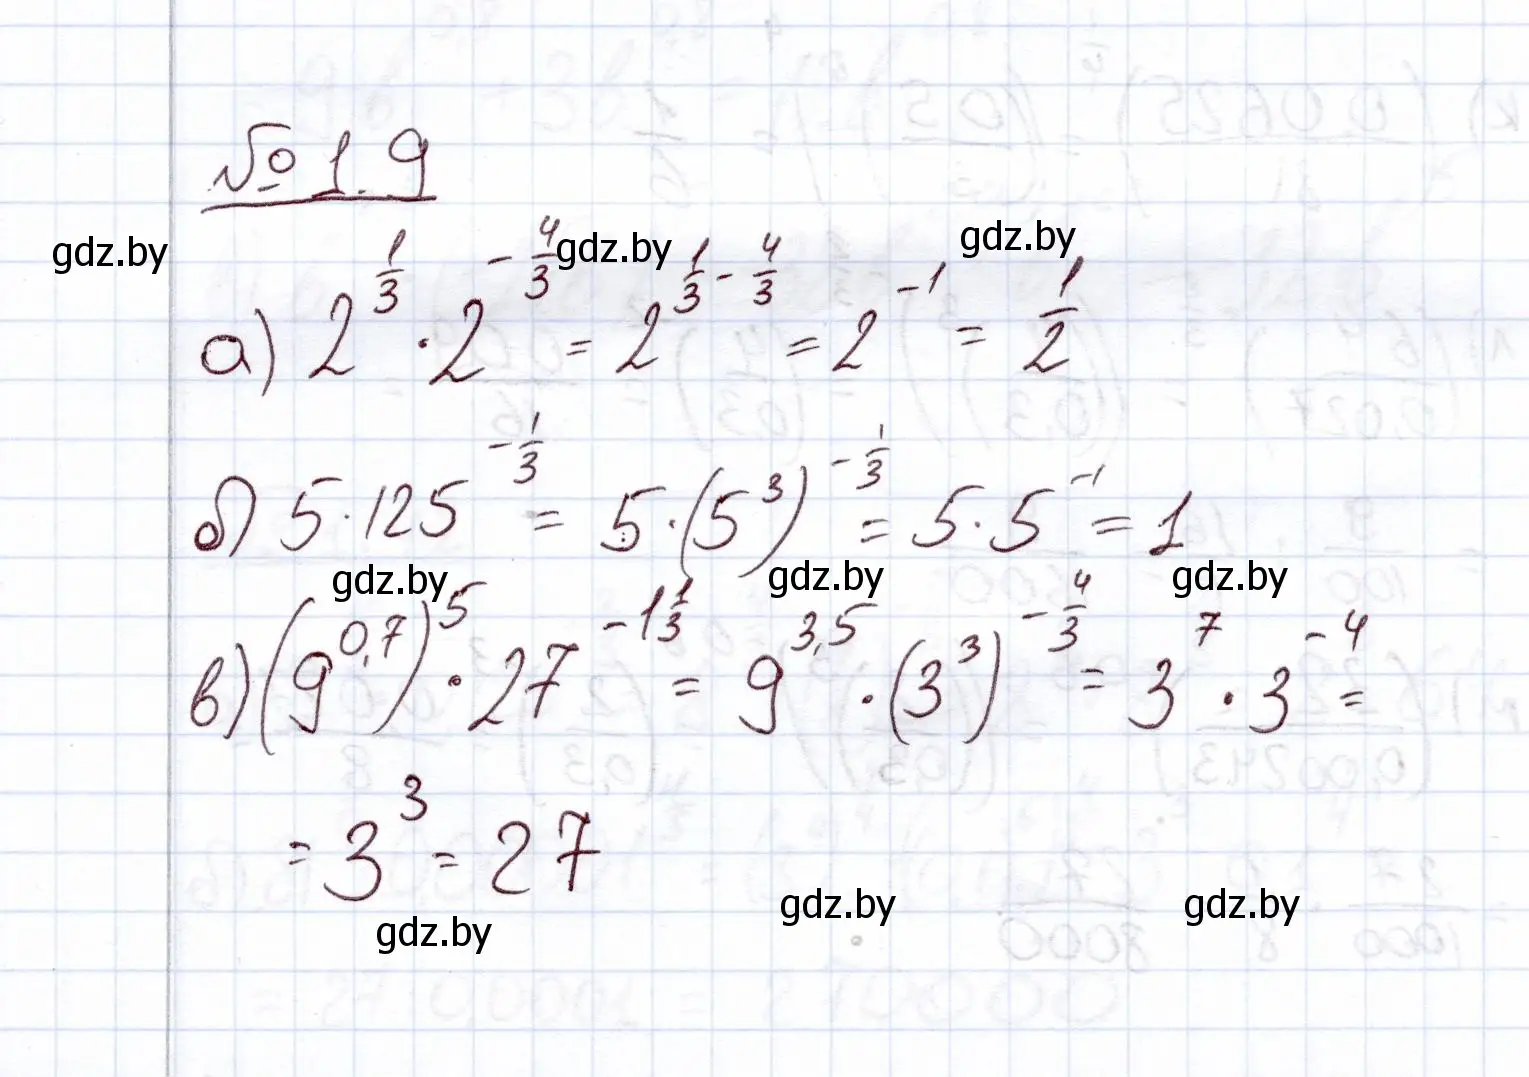 № 1.9
gdz.by gdz.by gdz.by
а) 2^{1/3} · 2^{-4/3} = 2^{1/3 - 4/3} = 2^{-1} = 1/2
б) 5 · 125^{-1/3} = 5 · (5^3)^{-1/3} = 5 · 5^{-1} = 1
gdz.by gdz.by gdz.by
в) (9^{0,7})^5 · 27^{-1 1/3} = 9^{3,5} · (3^3)^{-4/3} = 3^7 · 3^{-4} =
= 3^3 = 27
gdz.by gdz.by gdz.by